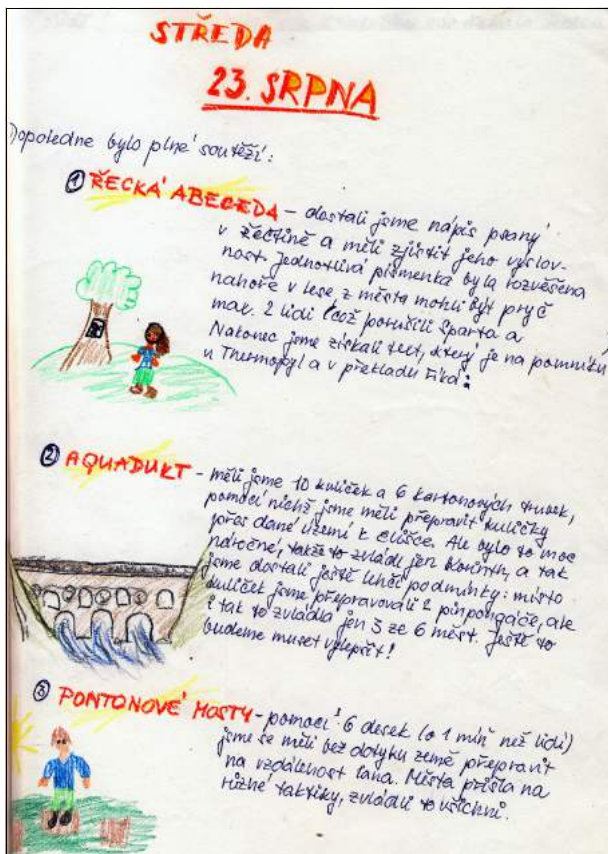 STŘEDA
23. SRPNA
Dopoledne bylo plné soutěží:
① ŘECKÁ ABECEDA – dostali jsme nápis psaný
v řečtině a měli zjistit jeho výslov-
nost. Jednotlivá písmenka byla rozvěšena
nahoře v lese, z města mohli být pryč
max. 2 lidi (což porušili Sparta a
Nakonec jsme získali text, který je na pomníku
u Thermopyl a v překladu říká:
② AQUADUKT – měli jsme 10 kuliček a 6 kartonových trubek,
pomocí nichž jsme měli přepravit kuličky
přes dané území k Elišce. Ale bylo to moc
náročné, takže to zvládl jen Korinth, a tak
jsme dostali ještě lehčí podmínky: místo
kuliček jsme přepravovali 2 pinpongáče, ale
i tak to zvládla jen 3 ze 6 měst. Ještě to
budeme muset vylepšit!
③ PONTONOVÉ MOSTY – pomocí 6 desek (o 1 míň než lidí)
jsme se měli bez dotyku země přepravit
na vzdálenost lana. Města přišla na
různé taktiky, zvládli to všichni.